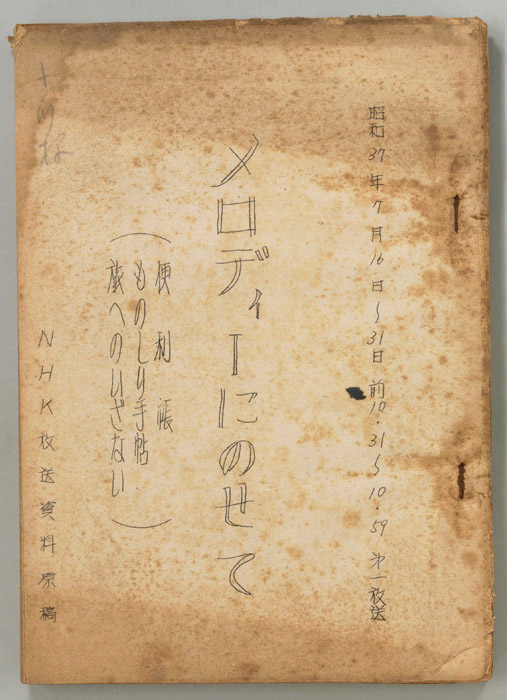 昭和37年7月16日〜31日 前10.31〜10.59 第一放送
メロディーにのせて
(便利帳
ものしり手帖
旅へのいざない)
NHK放送資料原稿